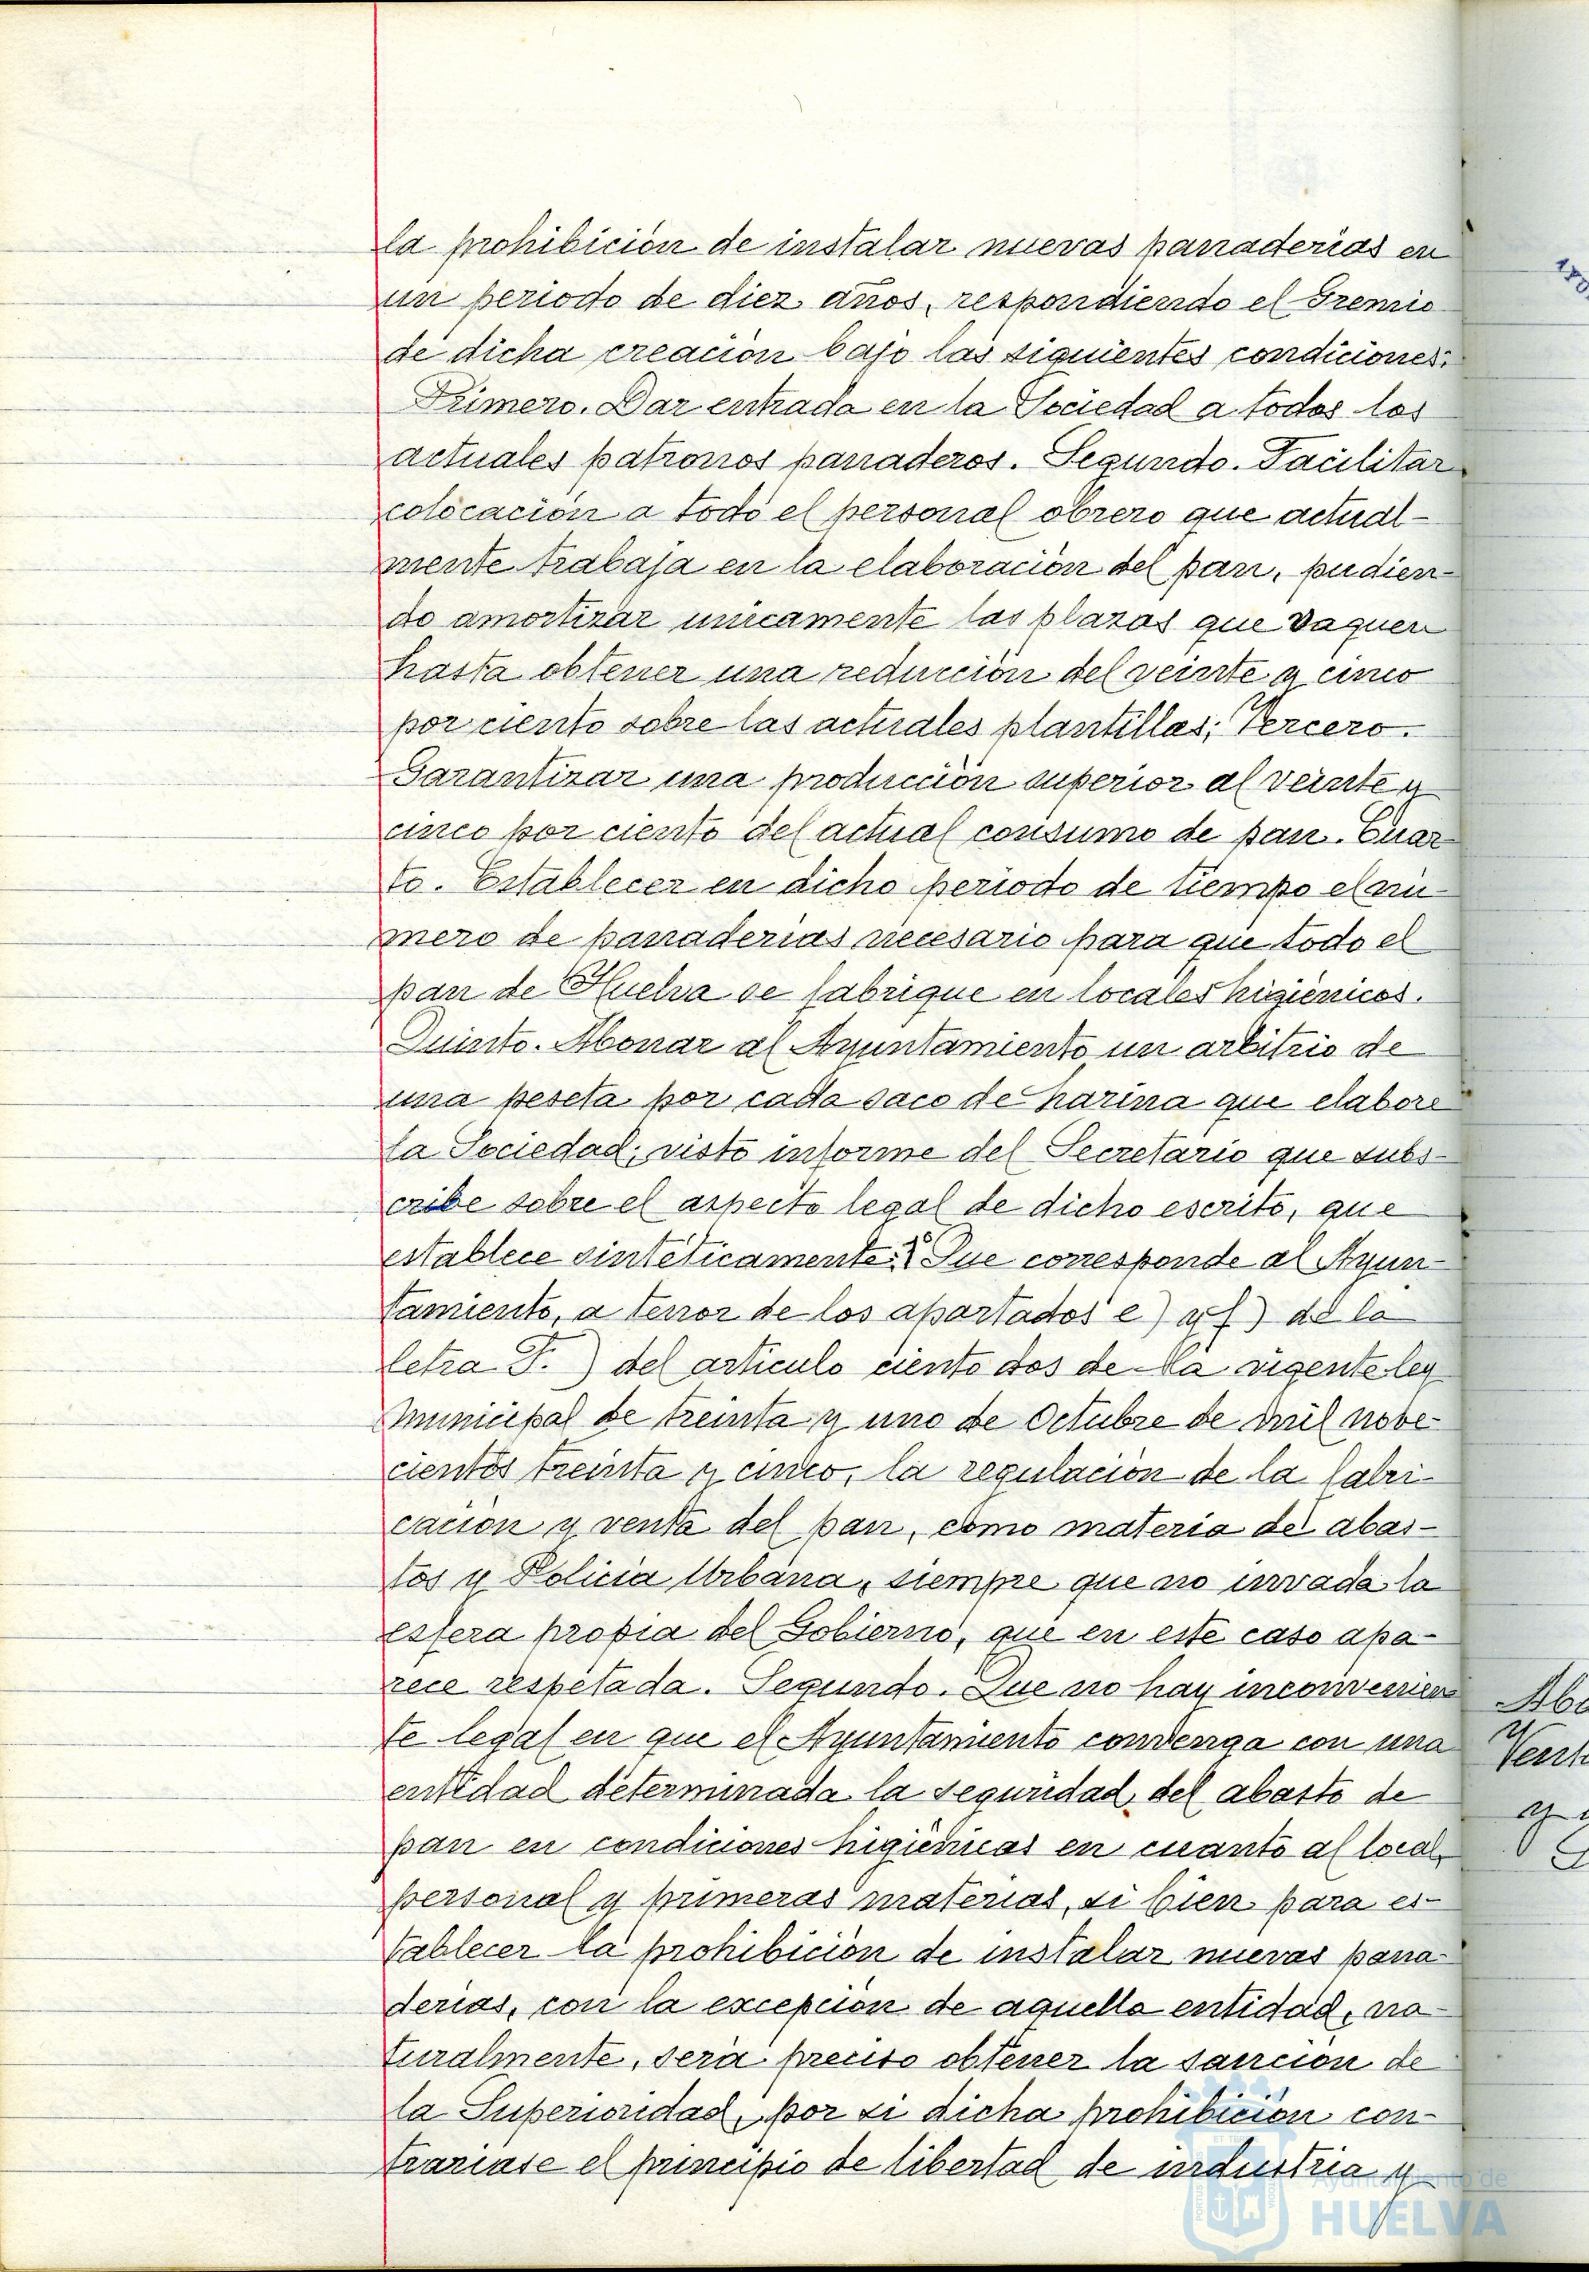 la prohibición de instalar nuevas panaderías en
un periodo de diez años, respondiendo el Gremio
de dicha creación bajo las siguientes condiciones:
Primero. Dar entrada en la Sociedad a todos los
actuales patronos panaderos. Segundo. Facilitar
colocación a todo el personal obrero que actual-
mente trabaja en la elaboración del pan, pudien-
do amortizar unicamente las plazas que vaquen
hasta obtener una reducción del veinte y cinco
por ciento sobre las actuales plantillas; Tercero.
Garantizar una producción superior al veinte y
cinco por ciento del actual consumo de pan. Cuar-
to. Establecer en dicho periodo de tiempo el nú-
mero de panaderías necesario para que todo el
pan de Huelva se fabrique en locales higiénicos.
Quinto. Abonar al Ayuntamiento un arbitrio de
una peseta por cada saco de harina que elabore
la Sociedad; visto informe del Secretario que subs-
cribe sobre el aspecto legal de dicho escrito, que
establece sintéticamente: 1º Que corresponde al Ayun-
tamiento, a tenor de los apartados e) y f) de la
letra F.) del artículo ciento dos de la vigente ley
Municipal de treinta y uno de Octubre de mil nove-
cientos treinta y cinco, la regulación de la fabri-
cación y venta del pan, como materia de abas-
tos y Policia Urbana, siempre que no invada la
esfera propia del Gobierno, que en este caso apa-
rece respetada. Segundo. Que no hay inconvenien-
te legal en que el Ayuntamiento convenga con una
entidad determinada la seguridad, del abasto de
pan en condiciones higiénicas en cuanto al local,
personal y primeras materias, si bien para es-
tablecer la prohibición de instalar nuevas pana-
derías, con la excepción de aquella entidad, na-
turalmente, será preciso obtener la sanción de
la Superioridad, por si dicha prohibición con-
trariase el principio de libertad de industria y
Ayuntamiento de
HUELVA